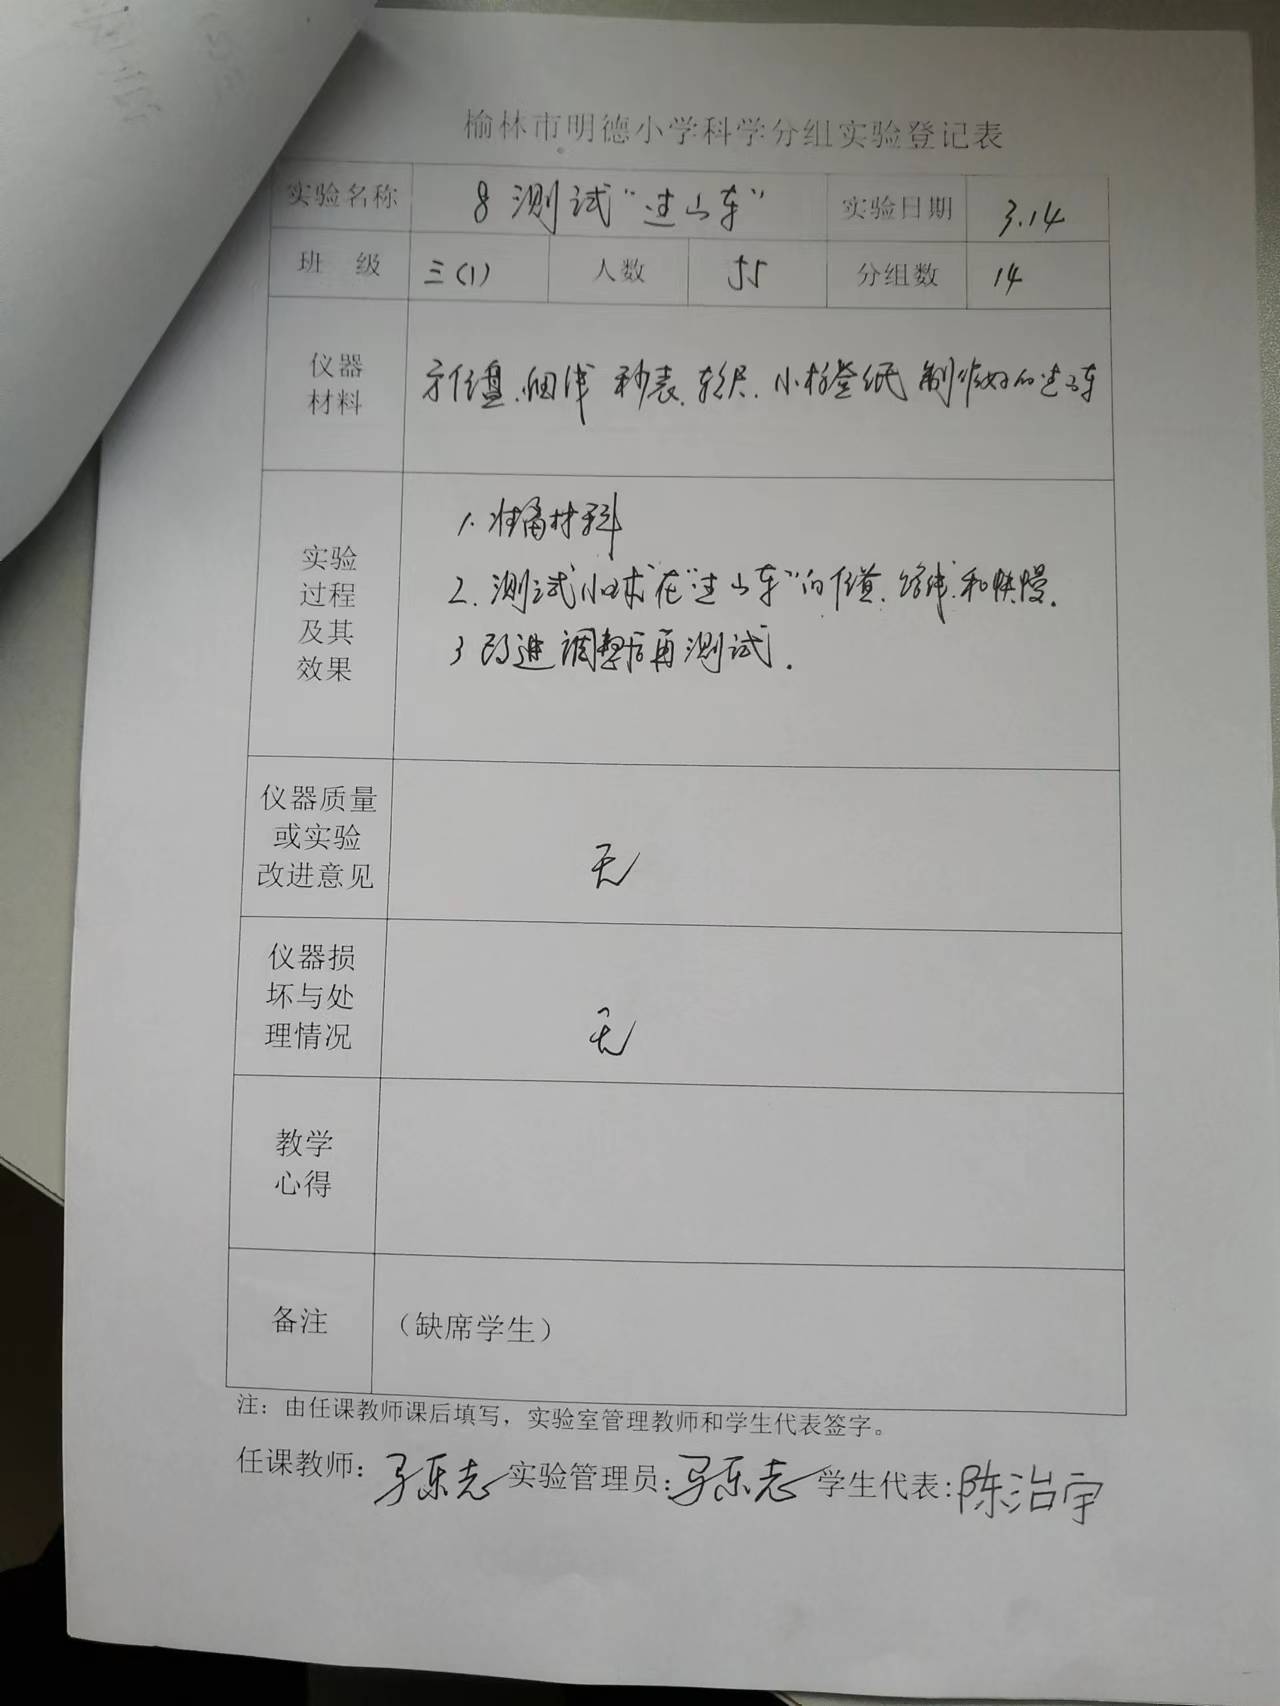 榆林市明德小学科学分组实验登记表
实验名称 8 测试“过山车” 实验日期 3.14
班 级 三(1) 人数 55 分组数 14
仪器
材料
方位盘、细线 秒表、软尺、小标签纸 制作好的过山车
实验
过程
及其
效果
1. 准备材料
2. 测试小球在“过山车”的位置、路线、和快慢.
3 改进调整后再测试.
仪器质量
或实验
改进意见
无
仪器损
坏与处
理情况
无
教学
心得
备注 （缺席学生）
注：由任课教师课后填写，实验室管理教师和学生代表签字。
任课教师： 实验管理员： 学生代表: 陈治宇